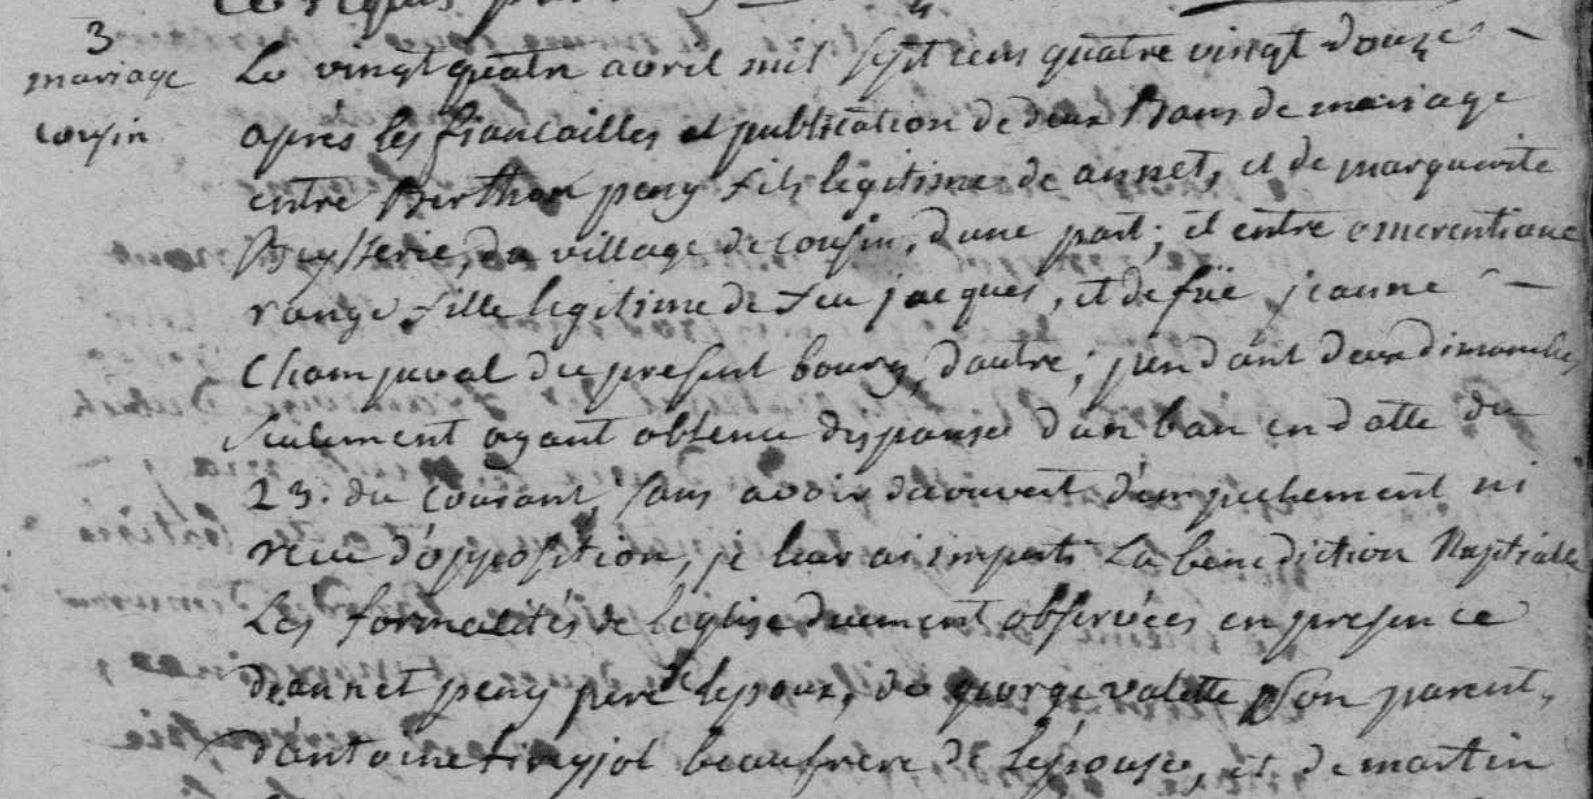 3
mariage
cousin
Le vingt quatre avril mil sept cens quatre vingt douze
après les fiancailles et publication de deux Bans de mariage
entre Berthon peny fils légitime de annet, et de marguerite
du village de cousin, d'une part; et entre emerentiane
range fille legitime de feu jacques, et de füe jeanne
Champaval du present bourg, d'autre; pendant deux dimanches
seulement ayant obtenu dispanse d'un ban en datte du
23. du courant, sans avoir decouvert d'empechement ni
reçu d'opposition, je leur ai imparti La bénédiction Nuptiale
Les formalités de l'eglise duement observées en presence
de annet peny pere de lepoux, de george valette son parent,
d'antoine beaufrere de l'épouse, et de martin